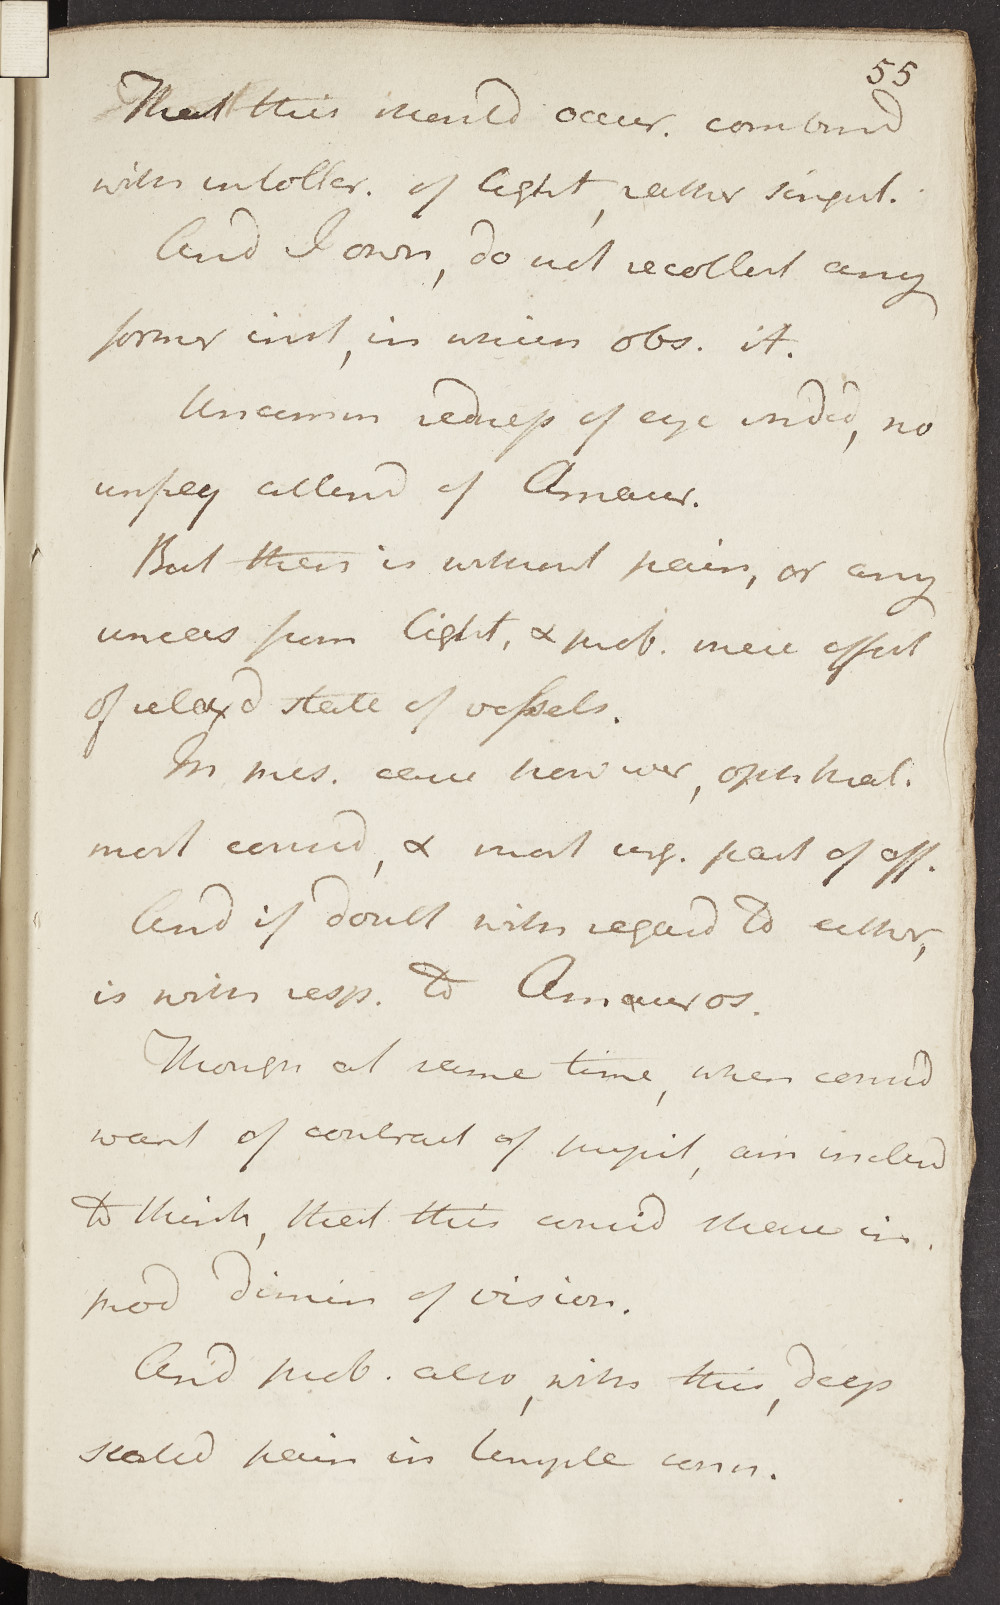 55
That this should occur. combind
with intoller. of light, rather singul.
And I own, do not recollect any
former inst, in which obs. it.
Uncommn redness of eye indd, no
unfreq attend of Amaur.
But then is without pain, or any
uneas from light, & prob. mere effect
of relaxd state of vessels.
In pres. case however, ophthal.
most consid, & most urg. part of aff.
And if doubt with regard to either,
is with resp. to Amauros.
Though at same time, when consid
want of contract of pupil, am inclind
to think, that this consid share in
prod dimin of vision.
And prob. also, with this, deep
seated pain in temple conn.